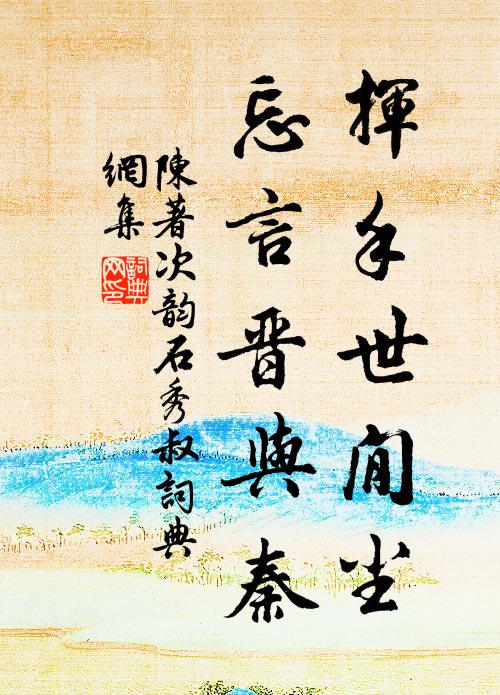 揮手世間尘
忘言晋與秦
陳著次韵石秀叔詞典
網集
詞典
网印